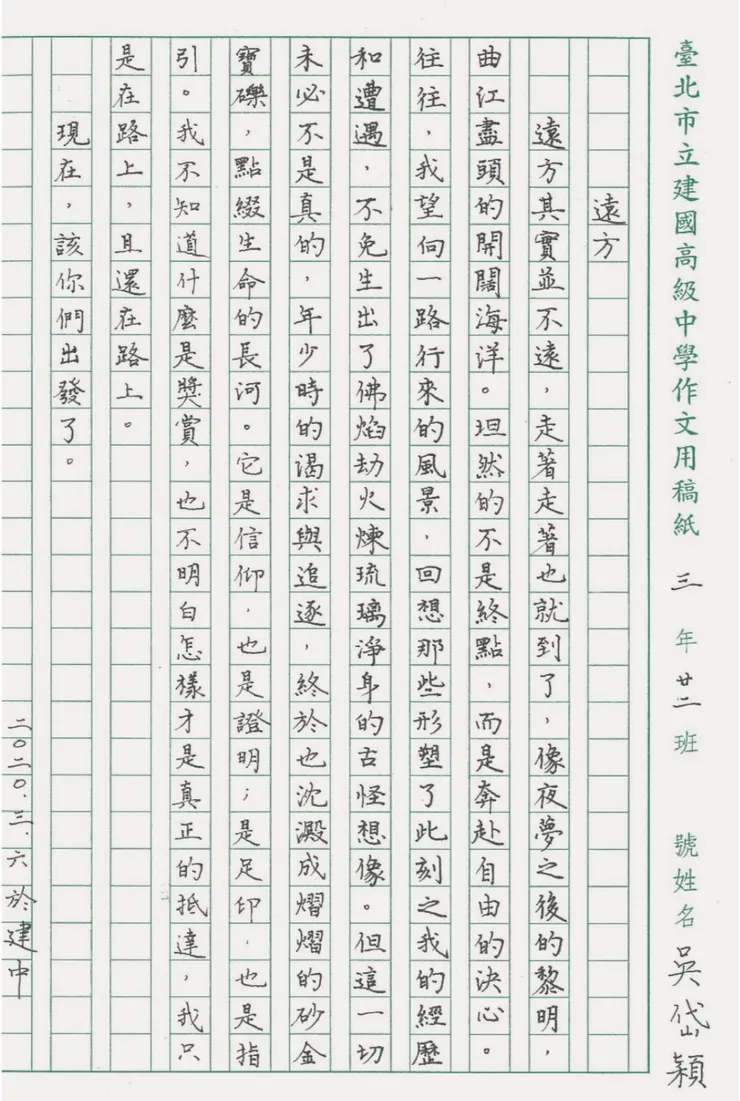 臺北市立建國高級中學作文用稿紙 三 年 廿二 班 號姓名 吳岱穎
遠方
遠方其實並不遠，走著走著也就到了，像夜夢之後的黎明，
曲江盡頭的開闊海洋。坦然的不是終點，而是奔赴自由的決心。
往往，我望向一路行來的風景，回想那些形塑了此刻之我的經歷
和遭遇，不免生出了佛焰劫火煉琉璃淨身的古怪想像。但這一切
未必不是真的，年少時的渴求與追逐，終於也沈澱成熠熠的砂金
寶礫，點綴生命的長河。它是信仰，也是證明；是足印，也是指
引。我不知道什麼是獎賞，也不明白怎樣才是真正的抵達，我只
是在路上，且還在路上。
現在，該你們出發了。
二〇二〇.三.六於建中